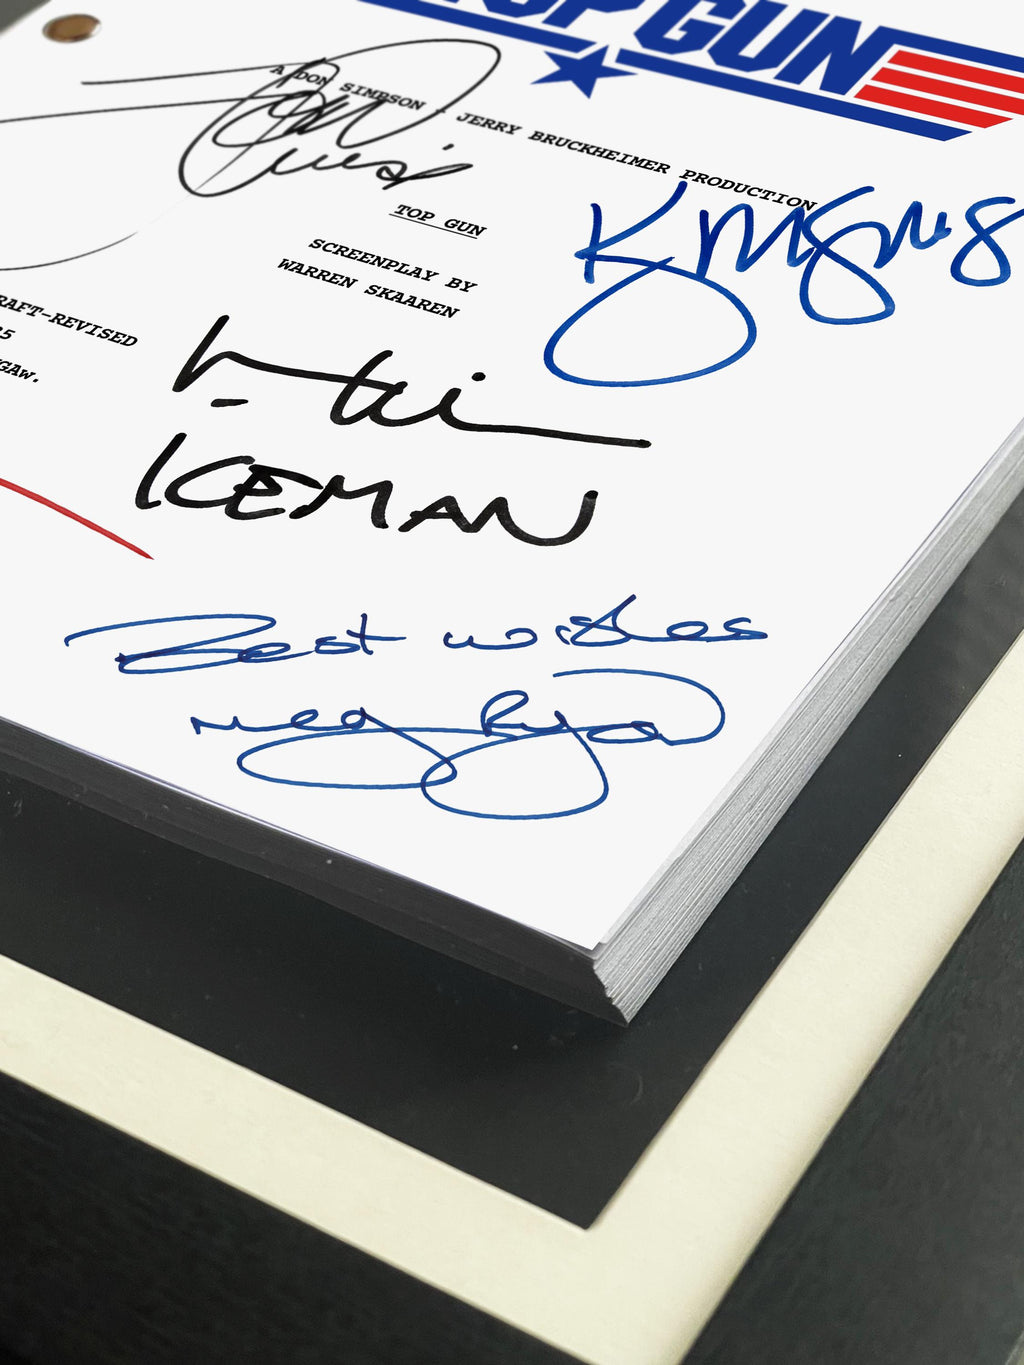 TOP GUN
A DON SIMPSON - JERRY BRUCKHEIMER PRODUCTION
Tom Cruise
TOP GUN
SCREENPLAY BY
WARREN SKAAREN
RAFT-REVISED
GAW.
ICEMAN
Best wishes
Meg Ryan